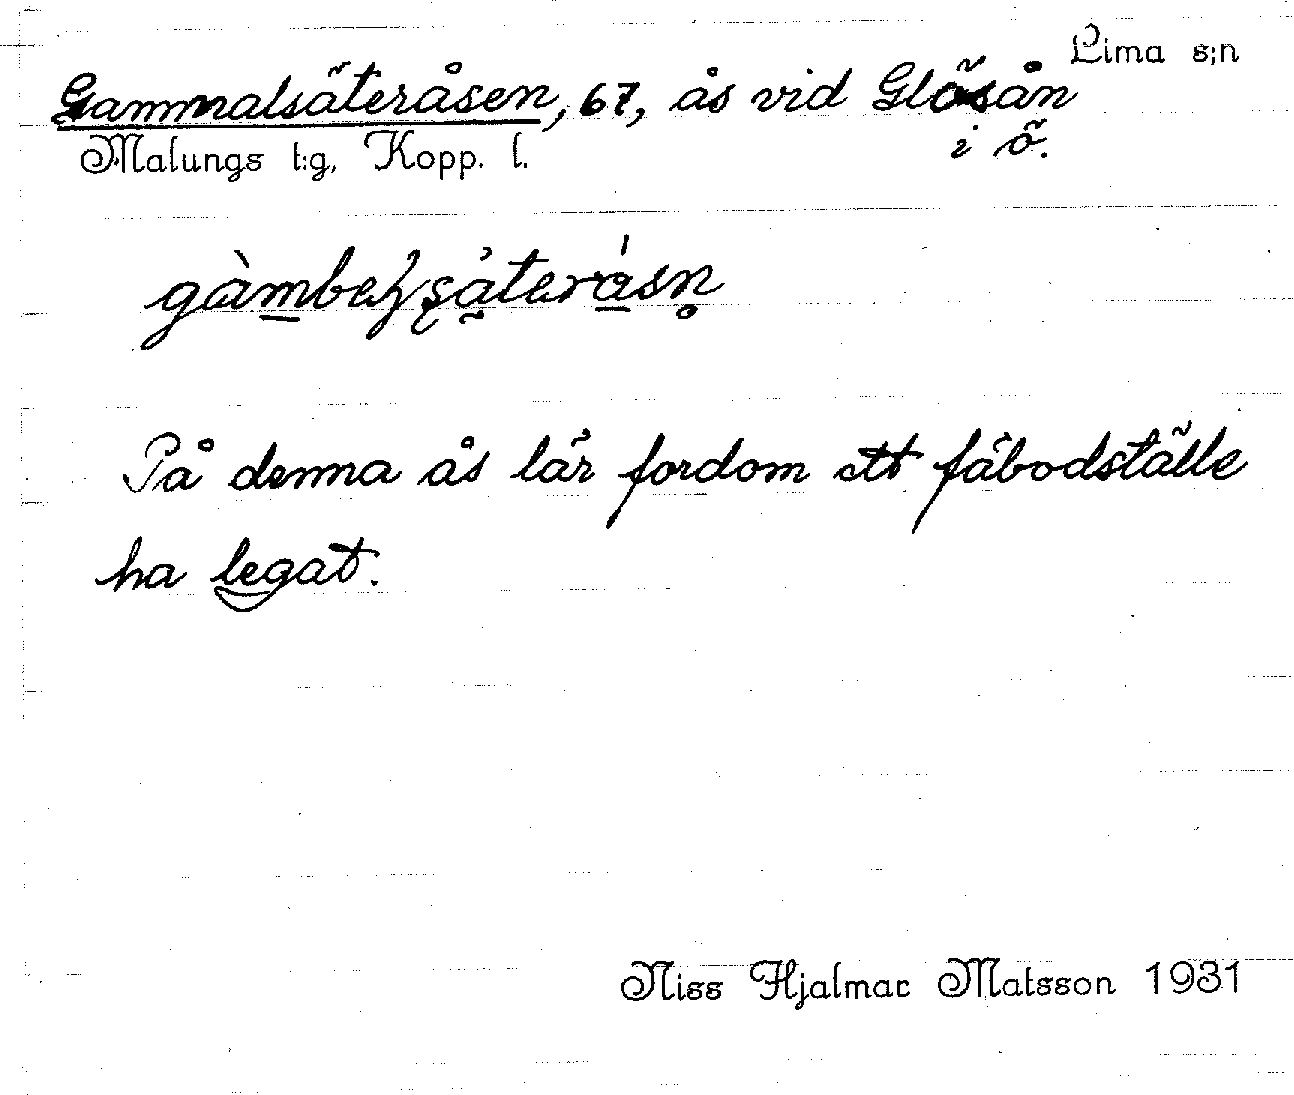 Lima s:n
Gammalsäteråsen, 67, ås vid Glösån
i ö.
Malungs t:g, Kopp. l.
På denna ås lär fordom ett fäbodställe
ha legat.
Niss Hjalmar Matsson 1931